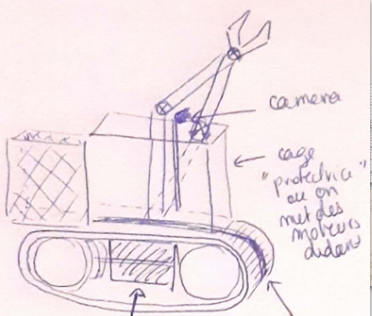 camera
cage
"protectrice"
ou on
met des
moteurs
dedans